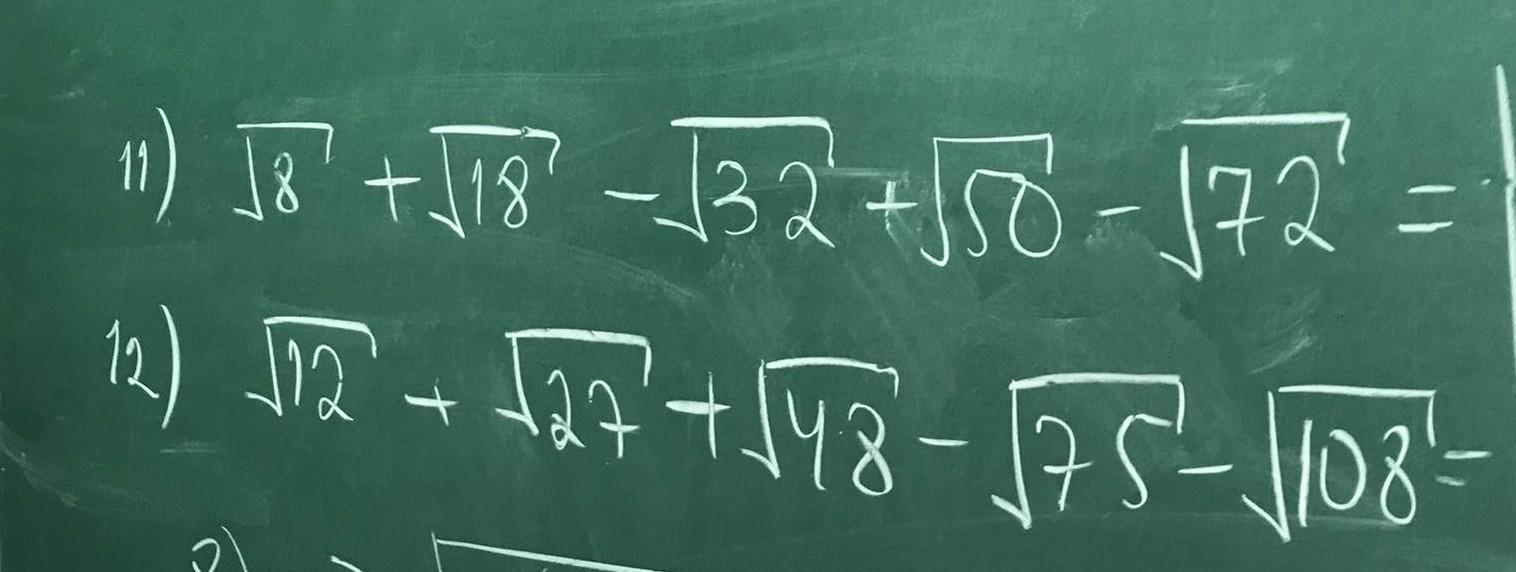 11) √8 + √18 - √32 + √50 - √72 =
12) √12 + √27 + √48 - √75 - √108 =